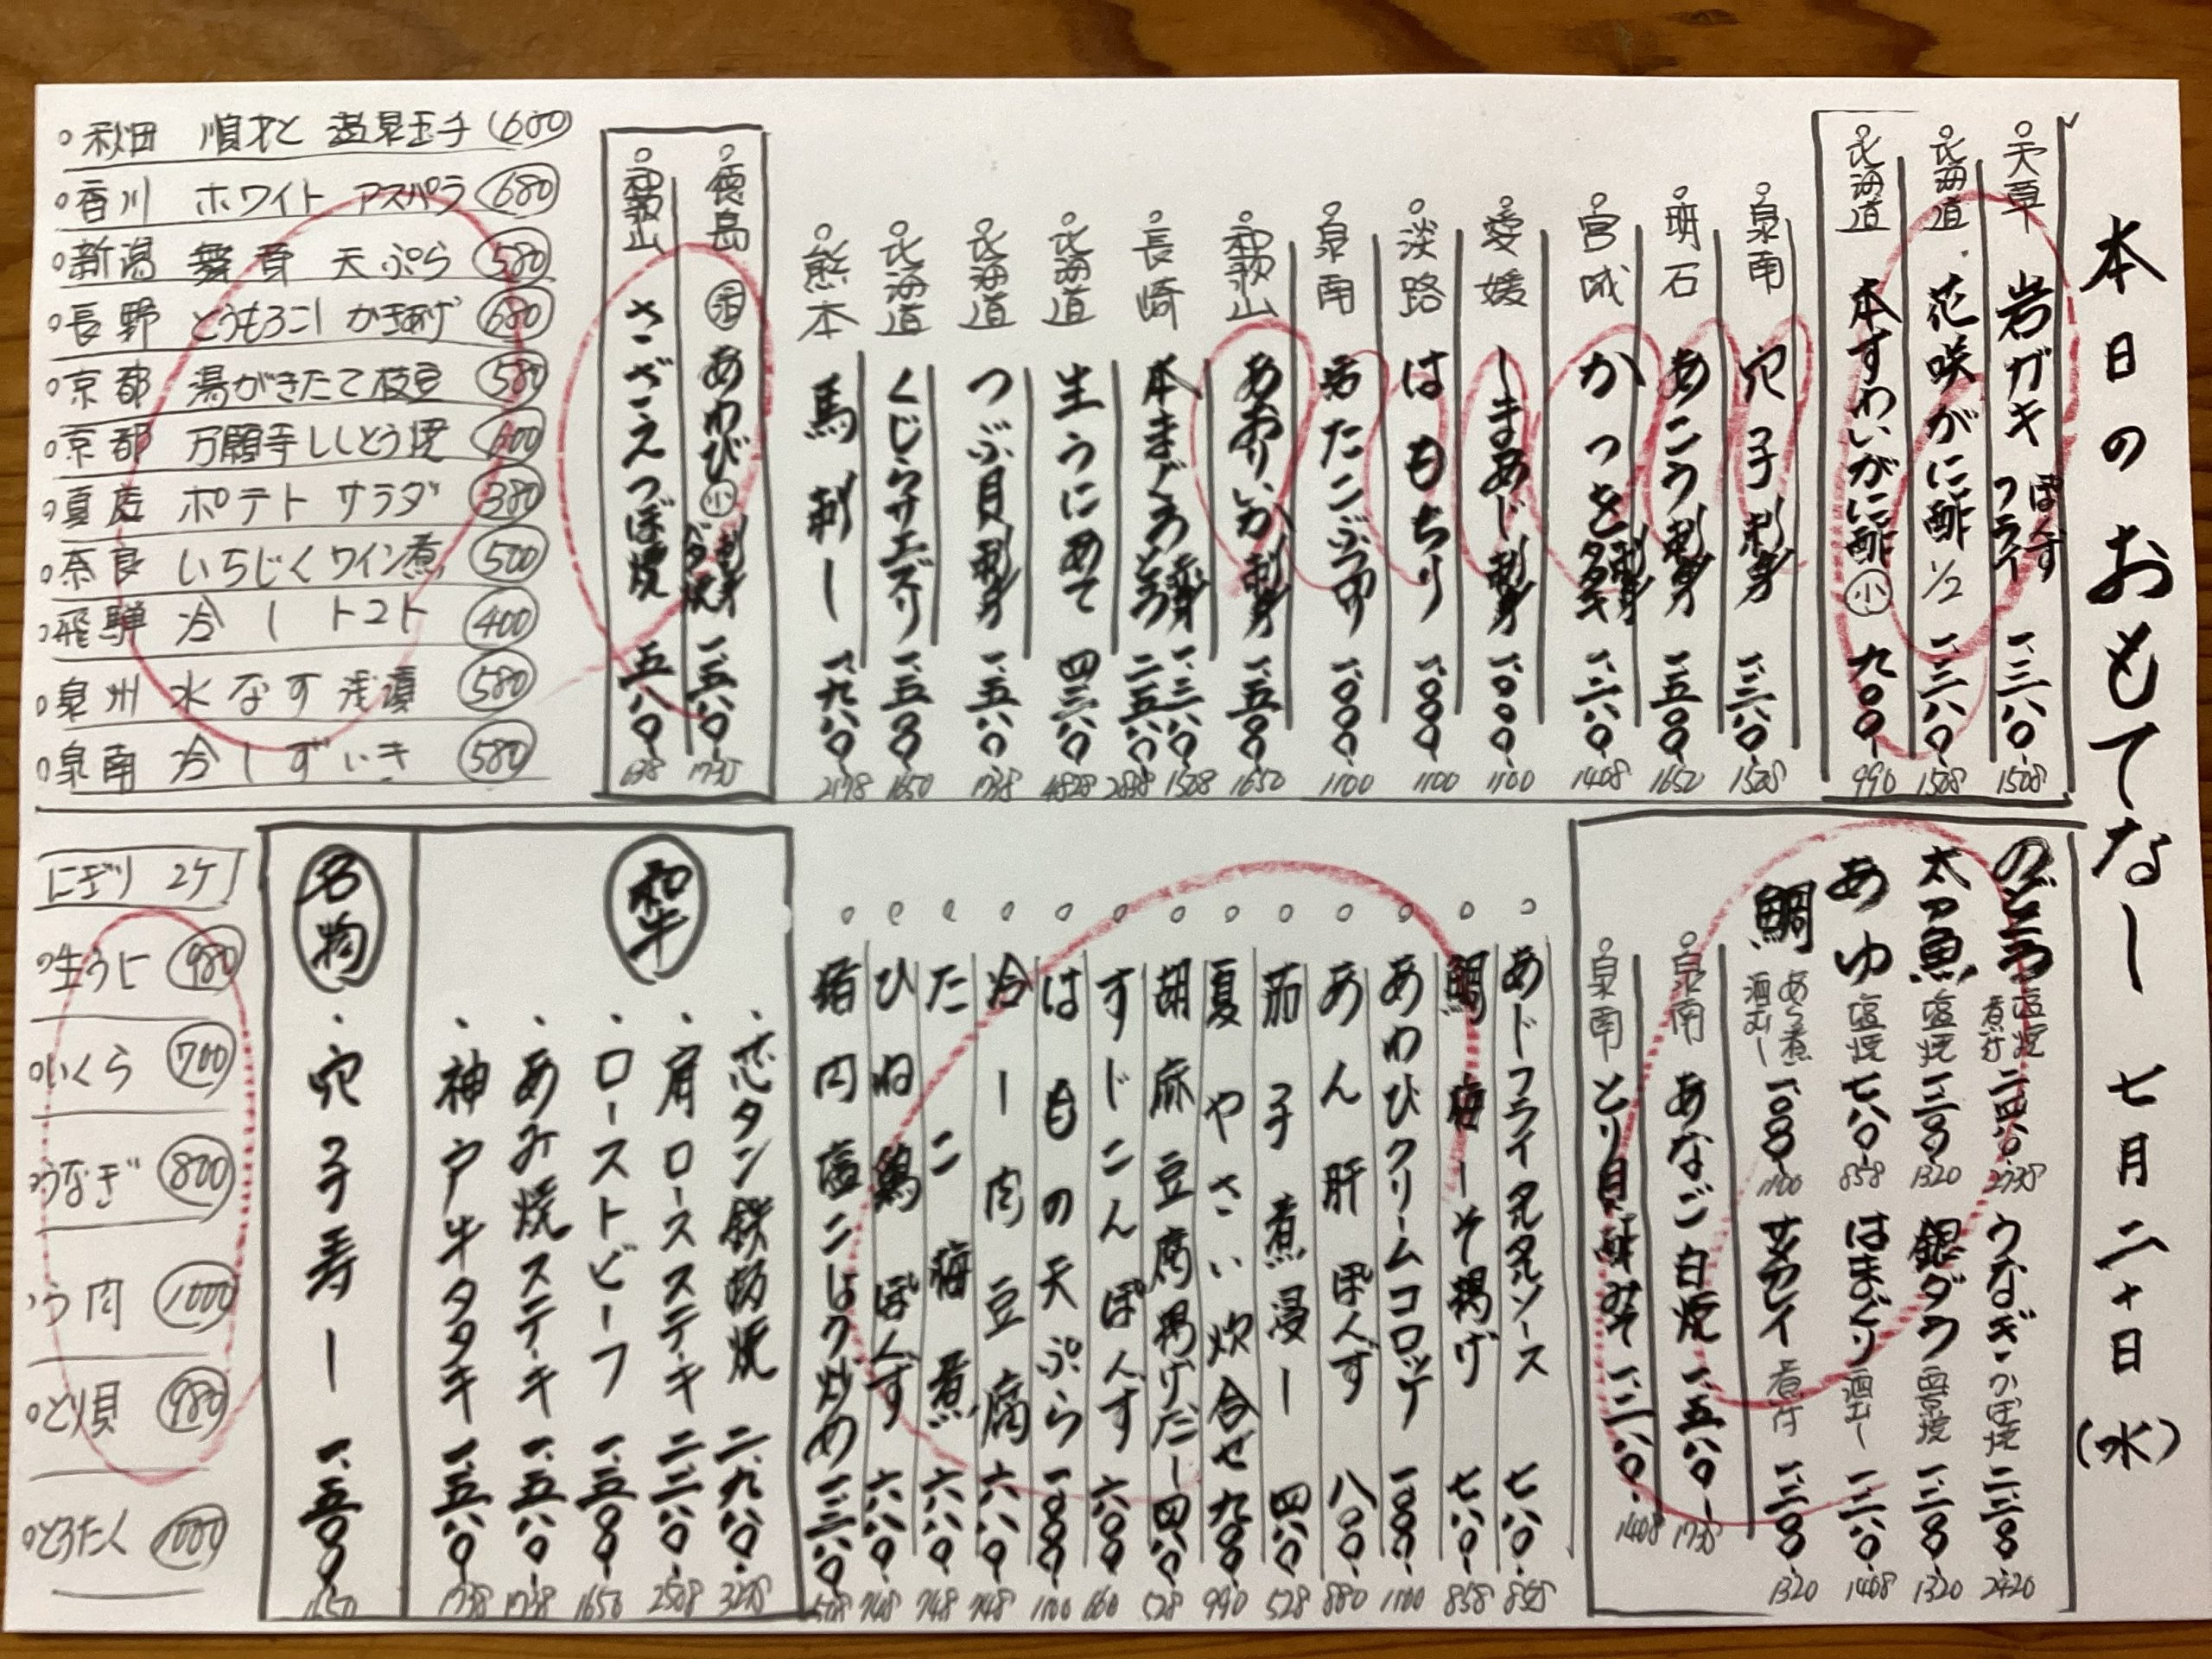 本日のおもてなし 七月二十日(水)
天草 岩ガキ ぽんず フライ 一、三八〇 1508
北海道 花咲がに酢 1/2 一、三八〇 1508
北海道 本ずわいがに酢 小 九〇〇 990
泉南 穴子刺身 1508
明石 あこう刺身 一、五〇〇 1650
宮城 かつを 刺身 タタキ 一、二八〇 1408
愛媛 しまあじ刺身 一、〇〇〇 1100
淡路 はもちり 一、〇〇〇 1100
泉南 岩たこぶつ切 一、〇〇〇 1100
和歌山 あおりいか刺身 一、五〇〇 1650
長崎 本まぐろ とろ 1508
北海道 生うにあて 四三八〇
北海道 つぶ貝刺身 一、五八〇 1738
北海道 くじらサエズリ 一、五〇〇 1650
熊本 馬刺し 一、九八〇 2178
徳島 活 あわび 小 刺身 バタ焼 一、五八〇 1738
和歌山 さざえつぼ焼 五八〇 638
秋田 順才と温泉玉子 600
香川 ホワイトアスパラ 680
新潟 舞茸天ぷら 580
長野 とうもろこしかきあげ 680
京都 湯がきたて枝豆 580
京都 万願寺ししとう焼 600
真庭 ポテトサラダ 380
奈良 いちじくワイン煮 500
飛騨 冷しトマト 400
泉州 水なす浅漬 580
泉南 冷しずいき 580
のどぐろ 塩焼 煮付 二、四八〇 2738
太刀魚 塩焼 一、二〇〇 1320
あゆ 塩焼 七八〇 858
鯛 あら煮 酒むし 一、〇〇〇 1100
うなぎ かば焼 二、二〇〇 2420
銀ダラ 西京焼 一、二〇〇 1320
はまぐり 酒むし 一、二八〇 1408
煮付 一、二〇〇 1320
泉南 あなご白焼 一、五八〇 1738
泉南 とり貝酢みそ 一、二八〇 1408
あじフライタルタルソース 七八〇 858
鯛梅しそ揚げ 七八〇 858
あわびクリームコロッケ 一、〇〇〇 1100
あん肝ぽんず 八〇〇 880
茄子煮浸し 四八〇 528
夏やさい炊合せ 九〇〇 990
胡麻豆腐揚げだし 四八〇 528
すじこんぽんず 六〇〇 660
はもの天ぷら 一、〇〇〇 1100
冷し肉豆腐 六八〇 748
たこ梅煮 六八〇 748
ひね鶏ぽんず 六八〇 748
猪肉塩こしょう炒め 1508
和牛
芯タン鉄板焼 二、九八〇 3278
肩ロースステーキ 二、二八〇 2508
ローストビーフ 一、五〇〇 1650
あみ焼ステーキ 一、五八〇 1738
神戸牛タタキ 一、五八〇 1738
名物
穴子寿し 一、五〇〇 1650
にぎり 2ケ
生うに 980
いくら 700
うなぎ 800
う肉 1000
とり貝 980
とろたく 1000